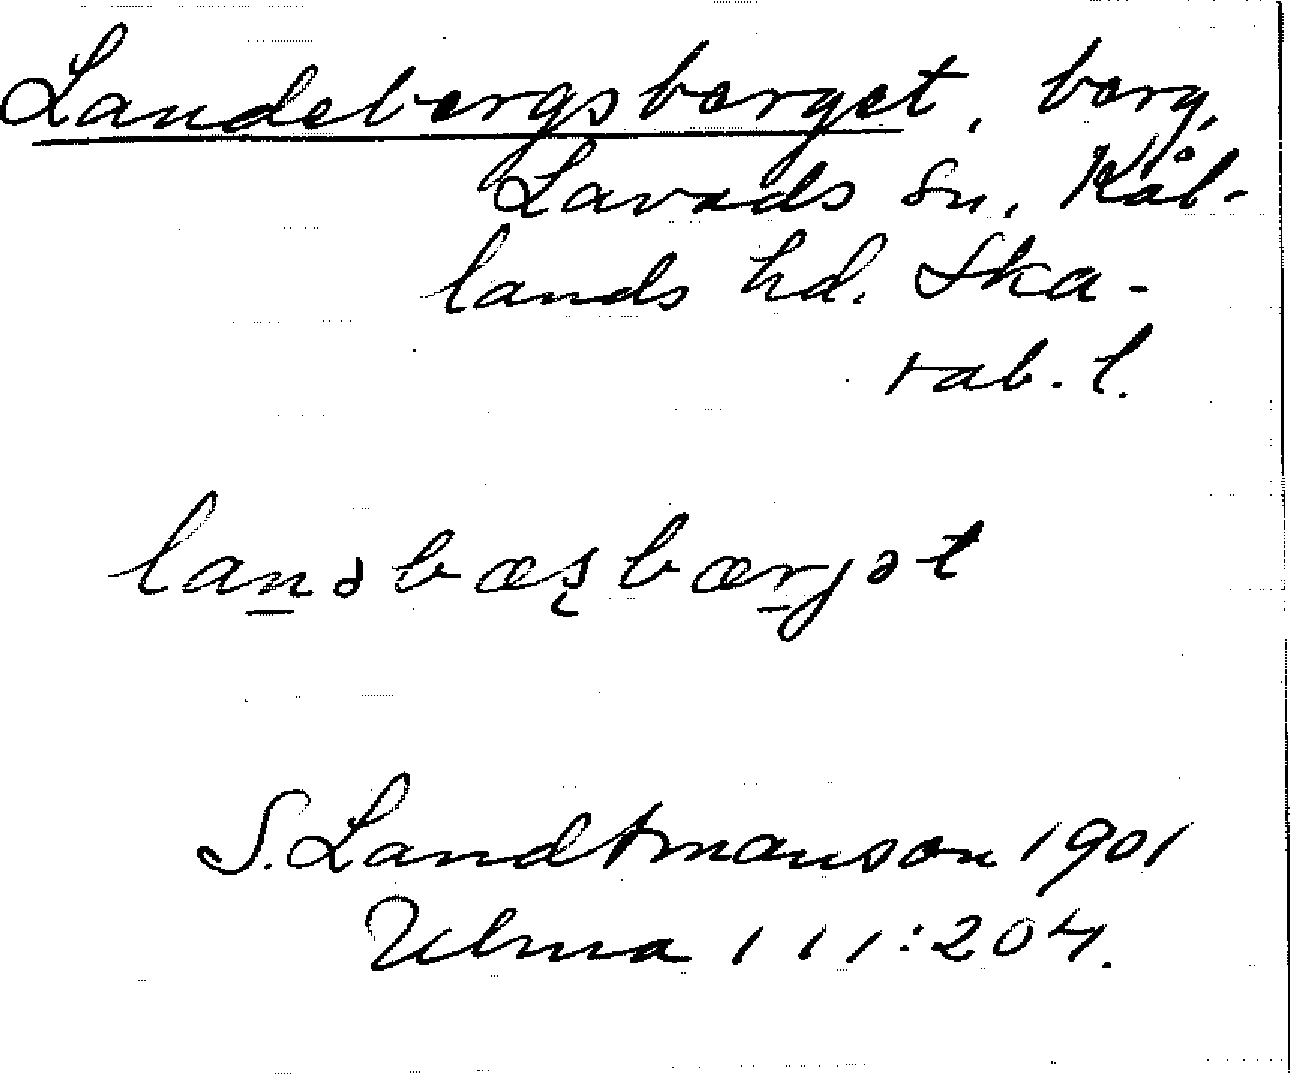 Landebergsberget, berg,
Lavads sn, Kål-
lands hd. Ska-
rab. l.
lanəbæsbærjət
S. Landtmanson 1901
Ulma 111:204.